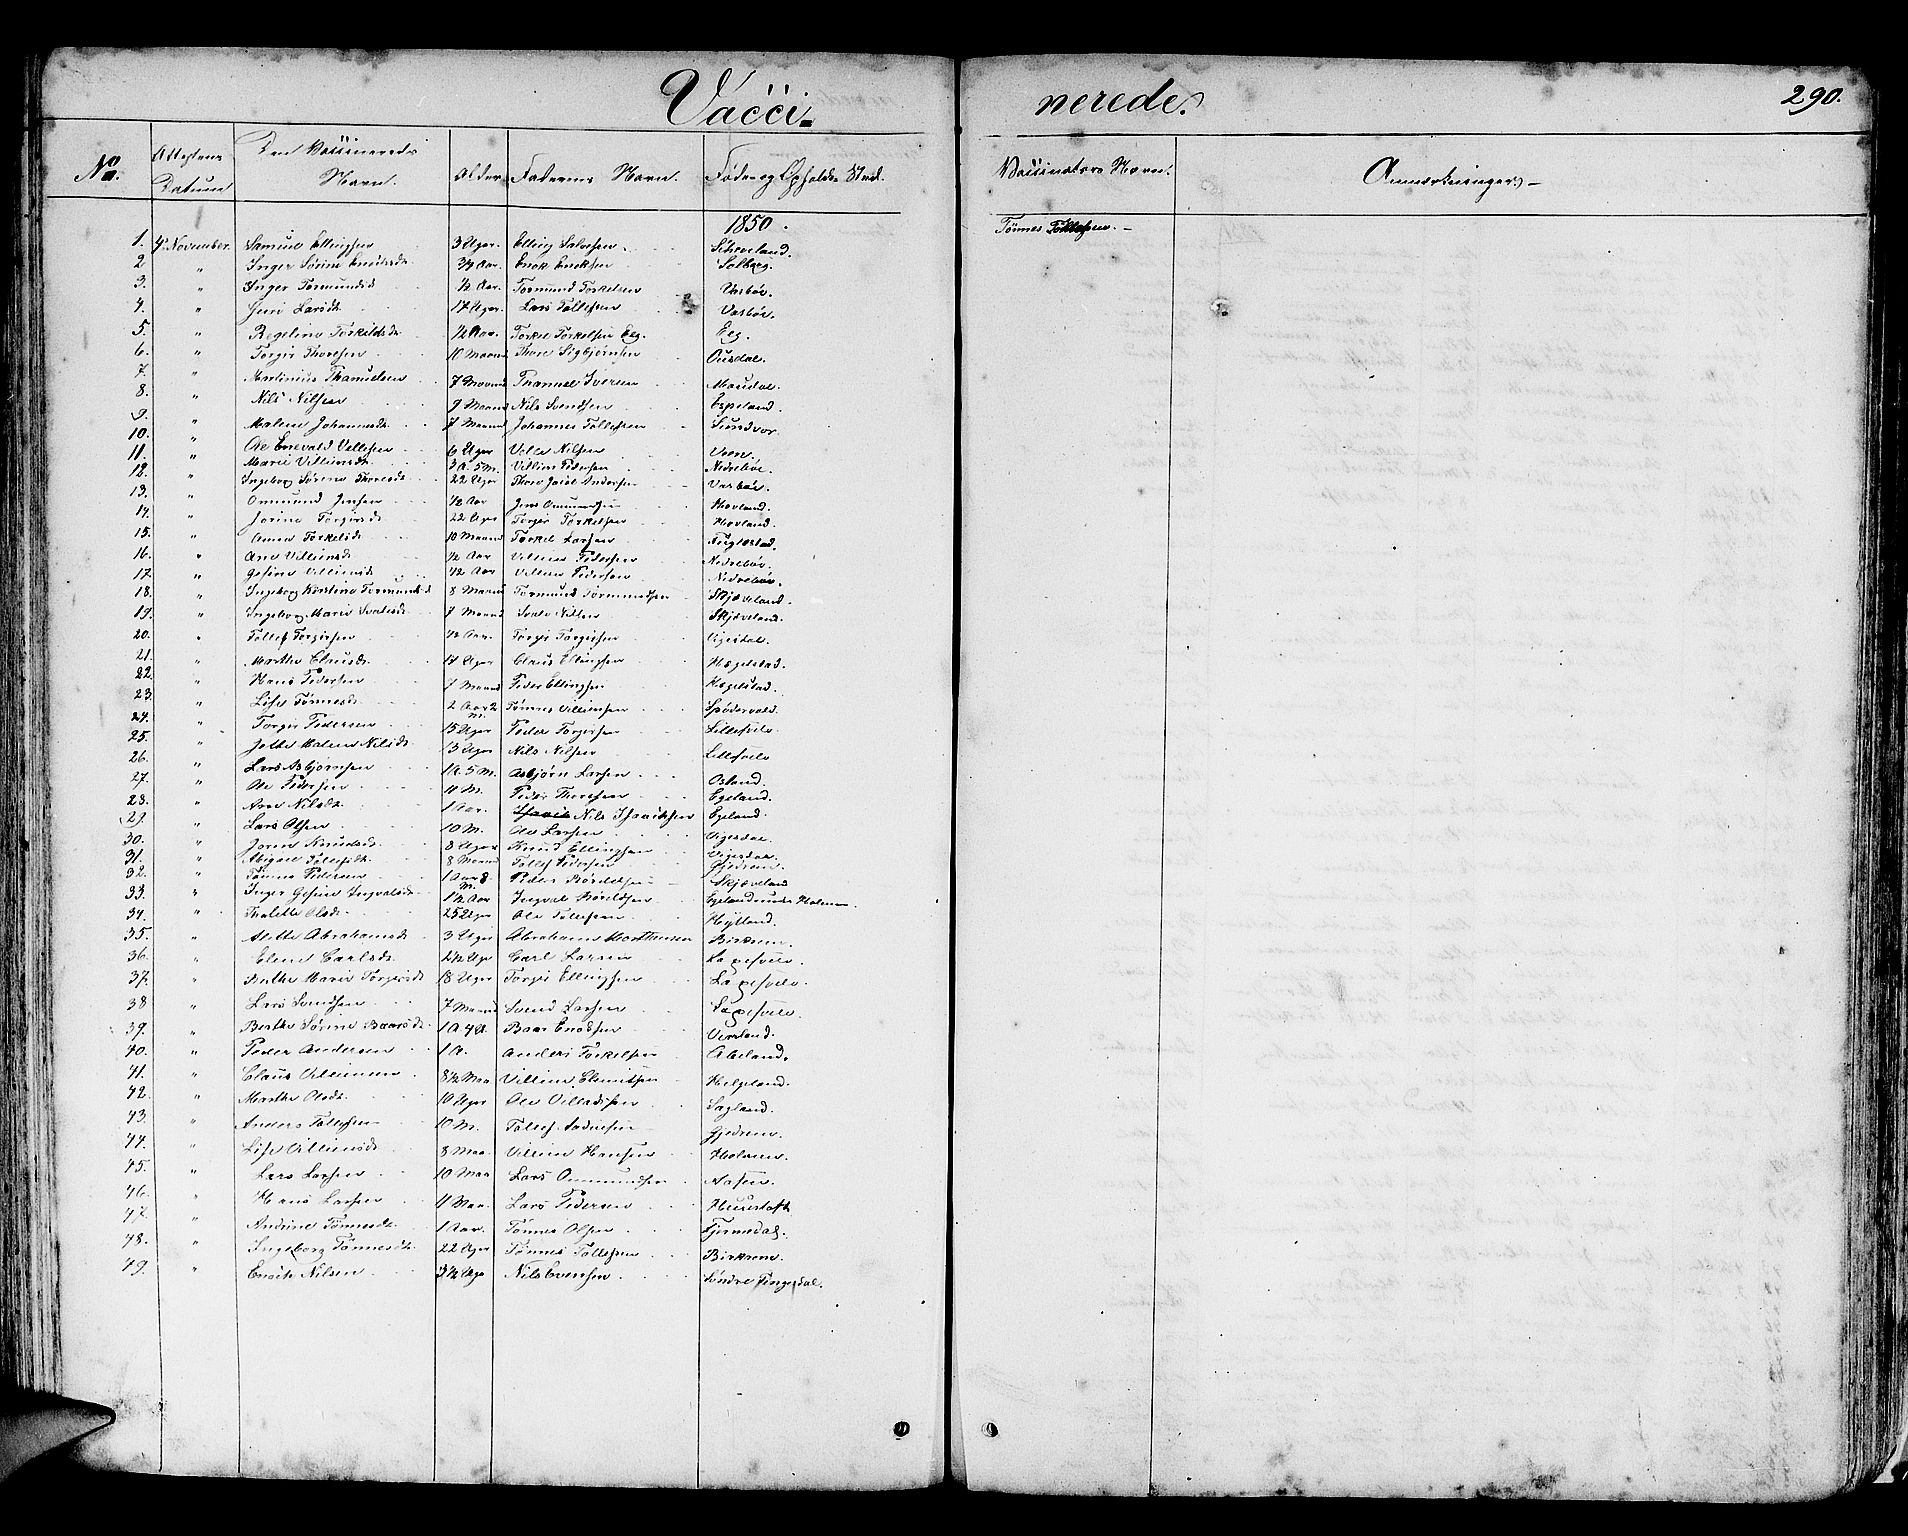 Vacci=
nerede.
290.
No.
Attestens Datum
Den Vaccineredes Navn.
Alder
Faderens Navn.
Føde og Opholds Sted.
Vaccinators Navn.
Anmærkninger. –
1850.
1. 4 November. Samuel Ellingsen 3 Uger. Elling Salvesen.
Tønnes Tollefsen. –
2 " Inger Sørine Enoksdt 3/4 Aar. Enok Enoksen Solberg.
3. " Inger Tormundsd ½ Aar. Tormund Torkelsen Vasbøe.
4. " Guri Larsdt 17 Uger. Lars Tollefsen Vasbøe.
5. " Regeline Torkildsdt ½ Aar. Torkel Torkelsen Eeg. Eeg.
6. " Torger Thoresen 10 Maaned Thore Sigbjørnsen Ousdal.
7. " Martinius Thamuelsen 7 Maaned Thamuel Iversen Maudal.
8. " Nils Nilsen 9 Maaned Nils Svendsen Espeland.
9. " Malene Johannesdt 7 Maaned Johannes Tollefsen Sundvor.
10. " Ole Enevald Vellesen 6 Uger Velle Nilsen Veen.
11. " Marie Villumsdt. 3 A. 5 M. Villum Pedersen Nedrebøe.
12. " Ingeborg Sørine Thoresdt 22 Uger Thore Jacob Andersen Vasbøe.
13. " Ommund Jensen ½ Aar Jens Ommundsen Hovland.
14. " Jorine Torgersdt 22 Uger Torger Torkelsen Hovland.
15. " Anne Torkelsdt 10 Maaned Torkel Larsen Fuglestad.
16. " Ane Villumsdt ½ Aar Villum Pedersen Nedrebøe.
17. " Gesine Villumsdt ½ Aar Villum Pedersen Nedrebøe.
18. " Ingeborg Kirstine Tormundsd 8 Maaned Tormund Tormundsen Skjæveland.
19. " Ingeborg Marie Svalesdt 7 Maaned Svale Nilsen Skjæveland.
20. " Tollef Torgersen ½ Aar. Torger Torgersen Vigesdal.
21. " Marthe Clausdt 14 Uger Claus Ellingsen Hægelstad.
22. " Hans Pedersen 7 Maaned Peder Ellingsen Hægelstad.
23. " Lise Tønnesdt 2 Aar 2 M. Tønnes Villumsen Spødervold.
24. " Torger Pedersen 15 Uger Peder Torgersen Lillesvele.
25. " Malene Nilsdt 13 Uger Nils Nilsen Lillesvele
26. " Lars Asbjørnsen 1 A. 5 M. Asbjørn Larsen Osland.
27. " Ole Pedersen 11 M. Peder Thoresen Egeland.
28. " Ane Nilsdt 1 Aar. Nils Isaaksen Egeland.
29. " Lars Olsen 10 M. Ole Larsen Vigesdal.
30. " Joren Knudsdt 8 Uger Knud Ellingsen Vigesdal.
31. " Abigael Tollefsdt 8 Maaned Tollef Pedersen Gjedrem.
32. " Tønnes Pedersen 1 Aar 8 M. Peder Bårdsen Skjæveland
33. " Inger Gesine Ingvaldsdt 1½ Aar Ingval Bårdsen Egeland under Holmen.
34. " Thalette Olsdt 25 Uger Ole Tollefsen Høyland.
35. " Alette Abrahamsdt 3 Uger Abraham Morthensen Birkrem.
36. " Elene Carlsdt 2½ Uge Carl Larsen Lagesvele.
37. " Marie Torgersdt 18 Uger Torger Ellingsen Lagesvele.
38 " Lars Svendsen 7 Maaned Svend Larsen Lagesvele.
39. " Berthe Sørine Baarsdt 1 A 4 U. Baar Enoksen
40. " Peder Andersen 1 A. Anders Torkelsen Abeland.
41. " Claus Villumsen 8½ Maa Villum Clemetsen Helgeland.
42. " Marthe Olsdt 10 Uger Ole Villadsen Sagland.
43. " Anders Tollefsen 10 M. Tollef Andersen Gjedrem.
44. " Lise Villumsdt 8 Maa. Villum Hansen Holmen.
45. " Lars Larsen 10 Maa Lars Ommundsen
46. " Hans Larsen 11 Maa. Lars Pedersen
47. " Andrine Tønnesdt 1 Aar. Tønnes Olsen
48. " Ingeborg Tønnesdt 22 Uger Tønnes Tollefsen Birkrem.
49. " Enok Nilsen 3½ Uge Nils Evensen Søndre Tingesdal.